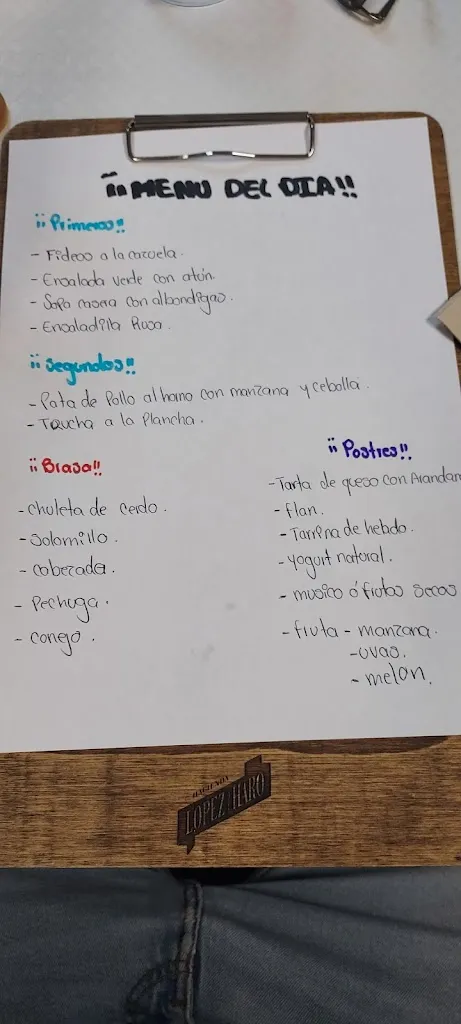 ¡¡MENU DEL DIA!!
¡¡Primeros!!
- Fideos a la cazuela.
- Ensalada verde con atún.
- Sopa casera con albondigas.
- Ensaladilla Rusa.
¡¡Segundos!!
- Pata de Pollo al horno con manzana y cebolla.
- Trucha a la Plancha.
¡¡Brasa!!
- Chuleta de cerdo.
- Solomillo.
- Cabezada.
- Pechuga.
- Conejo.
¡¡Postres!!
- Tarta de queso con Arandan
- flan.
- Tarrina de helado.
- yogurt natural.
- musico ó frutas secas
- fruta - manzana.
- uvas.
- melon.
HACIENDA
LOPEZ DE HARO